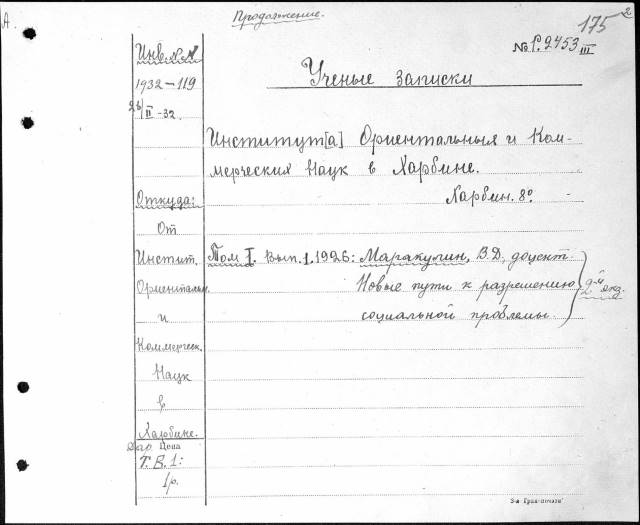 А.
Продолжение.
175 2
№ Р. 2453 III
Инв. № №
1932-119
26/II-32.
Ученые записки
Институт[а] Ориентальныя и Ком-
мерческих Наук в Харбине.
Харбин. 8º.
Откуда:
От
Инстит.
Ориентальн.
и
Коммерческ.
Наук
в
Харбине.
Том I. Вып. 1. 1926: Маракулин, В.Д., доцент.
Новые пути к разрешению
социальной проблемы.
2-й экз.
Дар Цена
Т. В. 1:
1р.